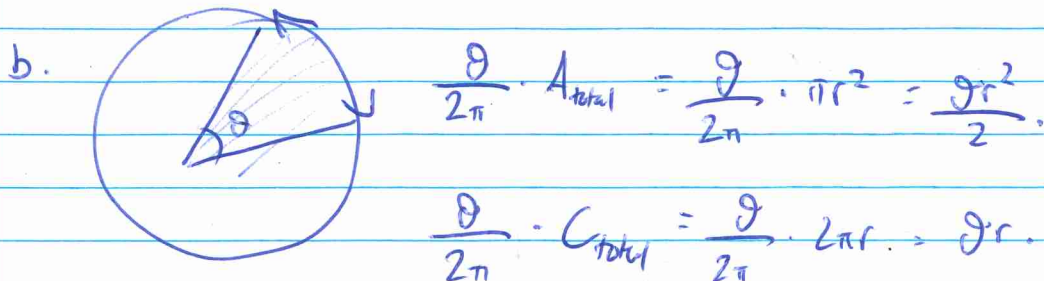 b.
θ
θ/2π · A_total = θ/2π · πr² = θr²/2.
θ/2π · C_total = θ/2π · 2πr. = θr.